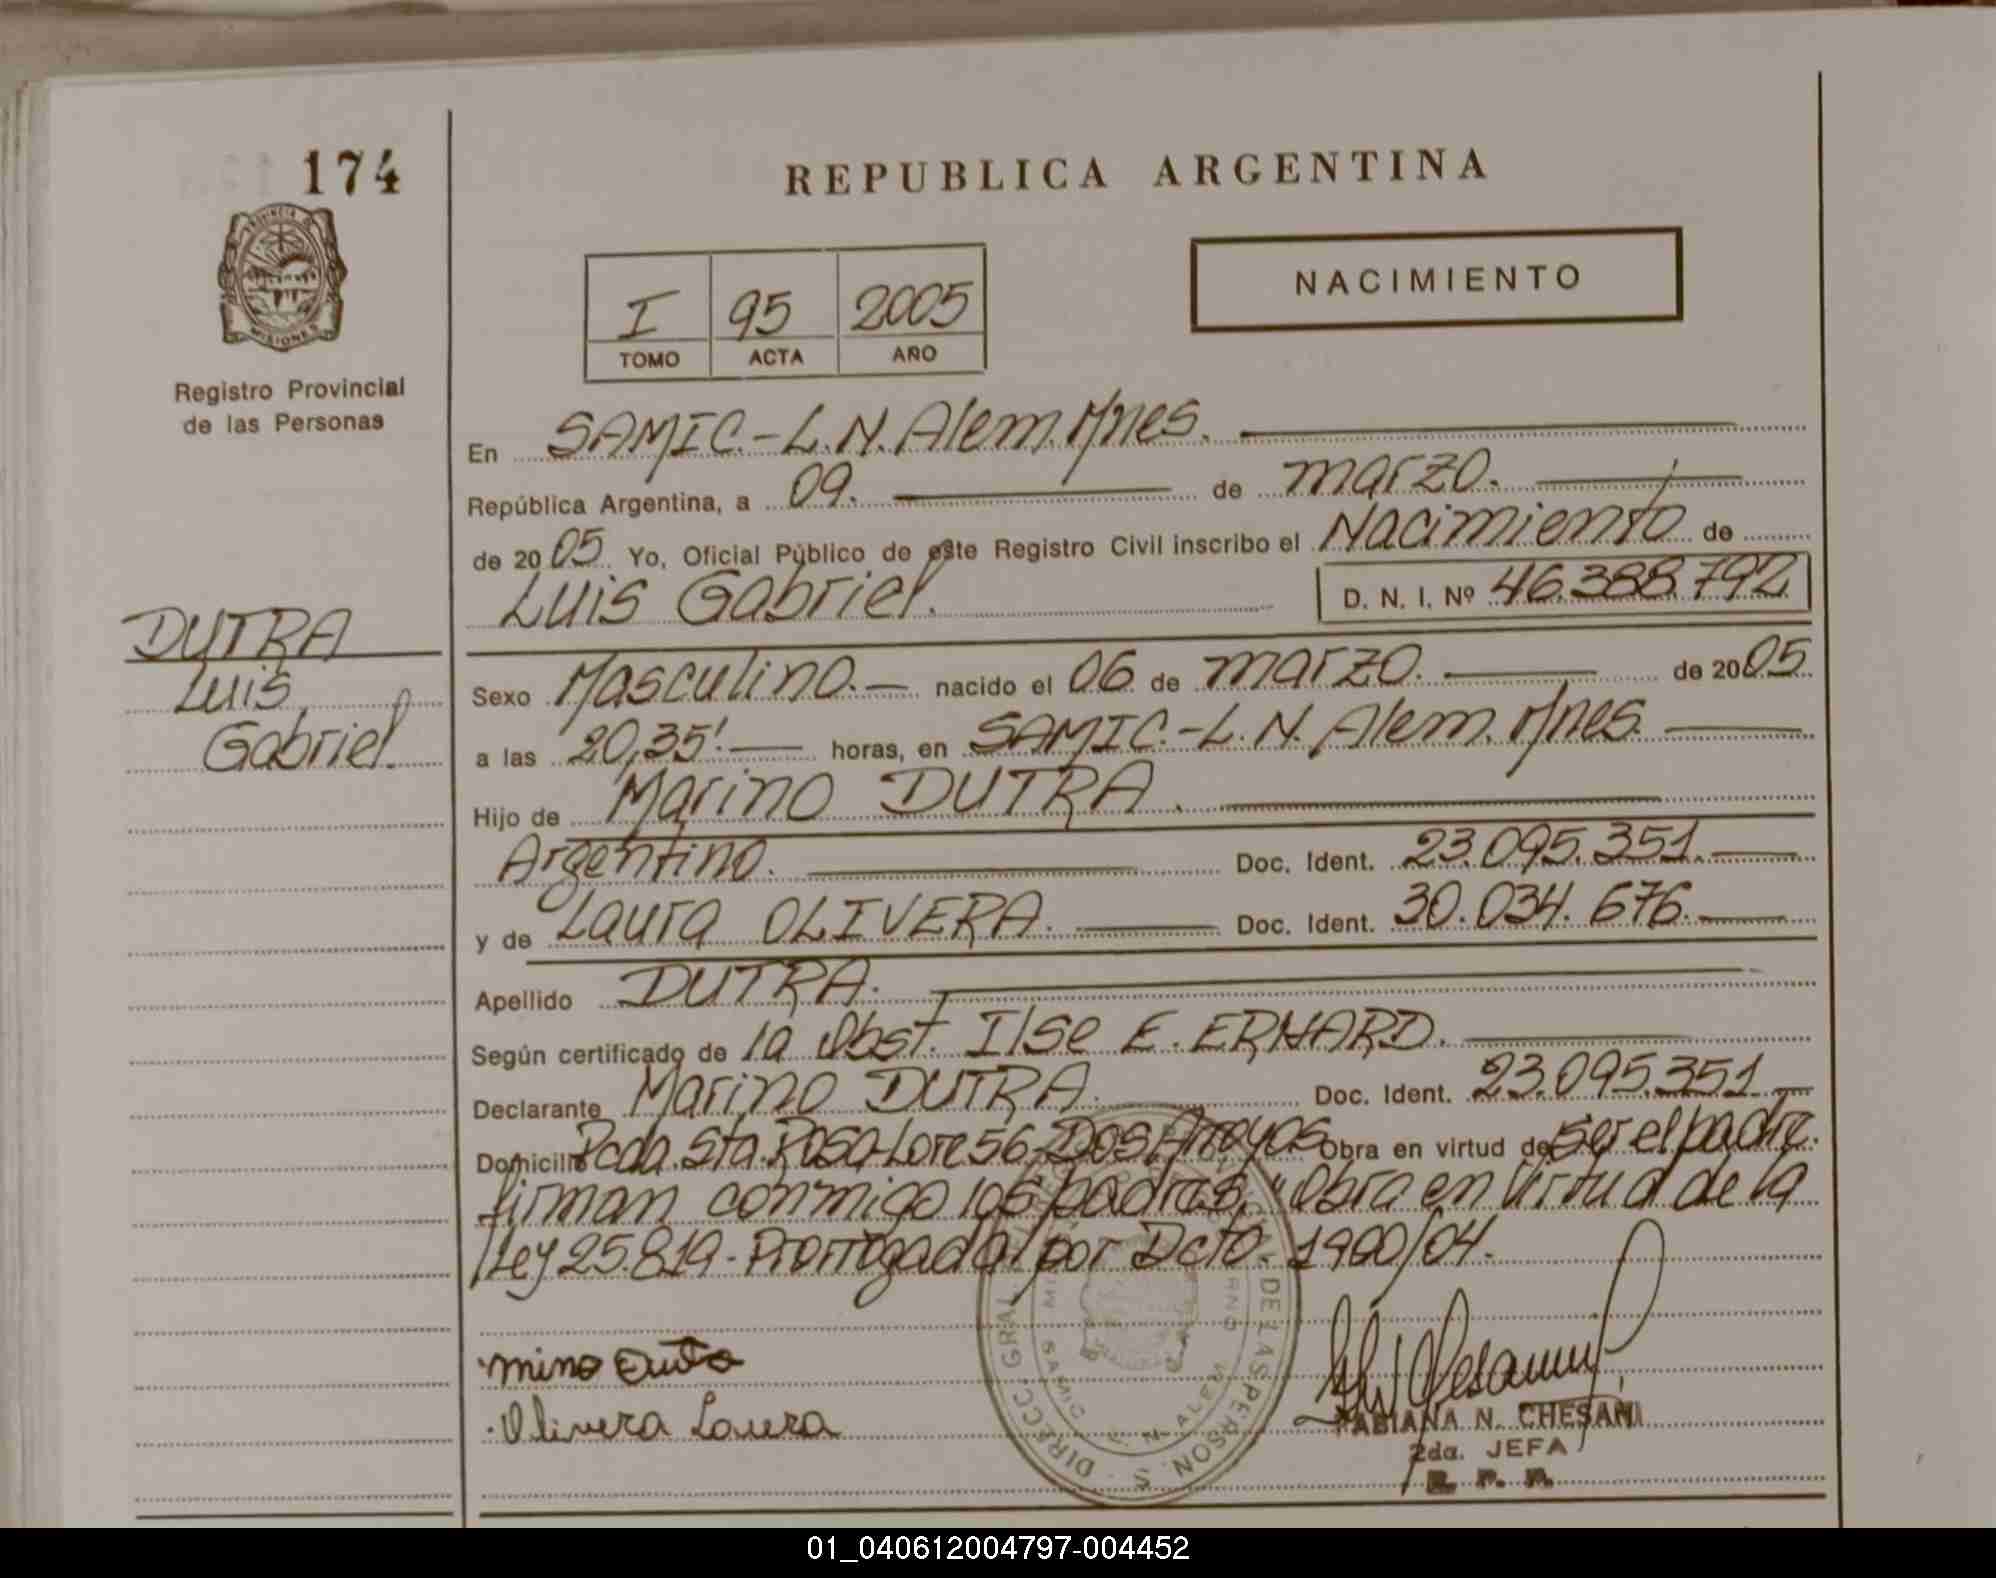 174
REPUBLICA ARGENTINA
PROVINCIA DE
MISIONES
Registro Provincial
de las Personas
I 95 2005
TOMO ACTA AÑO
NACIMIENTO
En SAMIC.-L.N. Alem. Mnes.
República Argentina, a 09. de marzo.
de 2005. Yo, Oficial Público de este Registro Civil inscribo el Nacimiento de
Luis Gabriel. D. N. I. Nº 46.388.792
DUTRA
Luis
Gabriel.
Sexo Masculino.- nacido el 06 de marzo. de 2005.
a las 20,35'. horas, en SAMIC.-L.N. Alem. Mnes.
Hijo de Marino DUTRA.
Argentino. Doc. Ident. 23.095.351.
y de Laura OLIVERA. Doc. Ident. 30.034.676.
Apellido DUTRA.
Según certificado de la Obst. Ilse E. ERHARD.
Declarante Marino DUTRA. Doc. Ident. 23.095.351.
Domicilio Pcda. Sta. Rosa-Lote 56-Dos Arroyos Obra en virtud de ser el padre.
firman conmigo los padres, Obra en virtud de la
Ley 25.819-Prorrogada por Dcto. 1900/04.
Olivera Laura
DIRECC. GRAL. DE LAS PERSON. S.
SAMIC L. N. ALEM
FABIANA N. CHESANI
2da. JEFA
R. P. P.
01_040612004797-004452